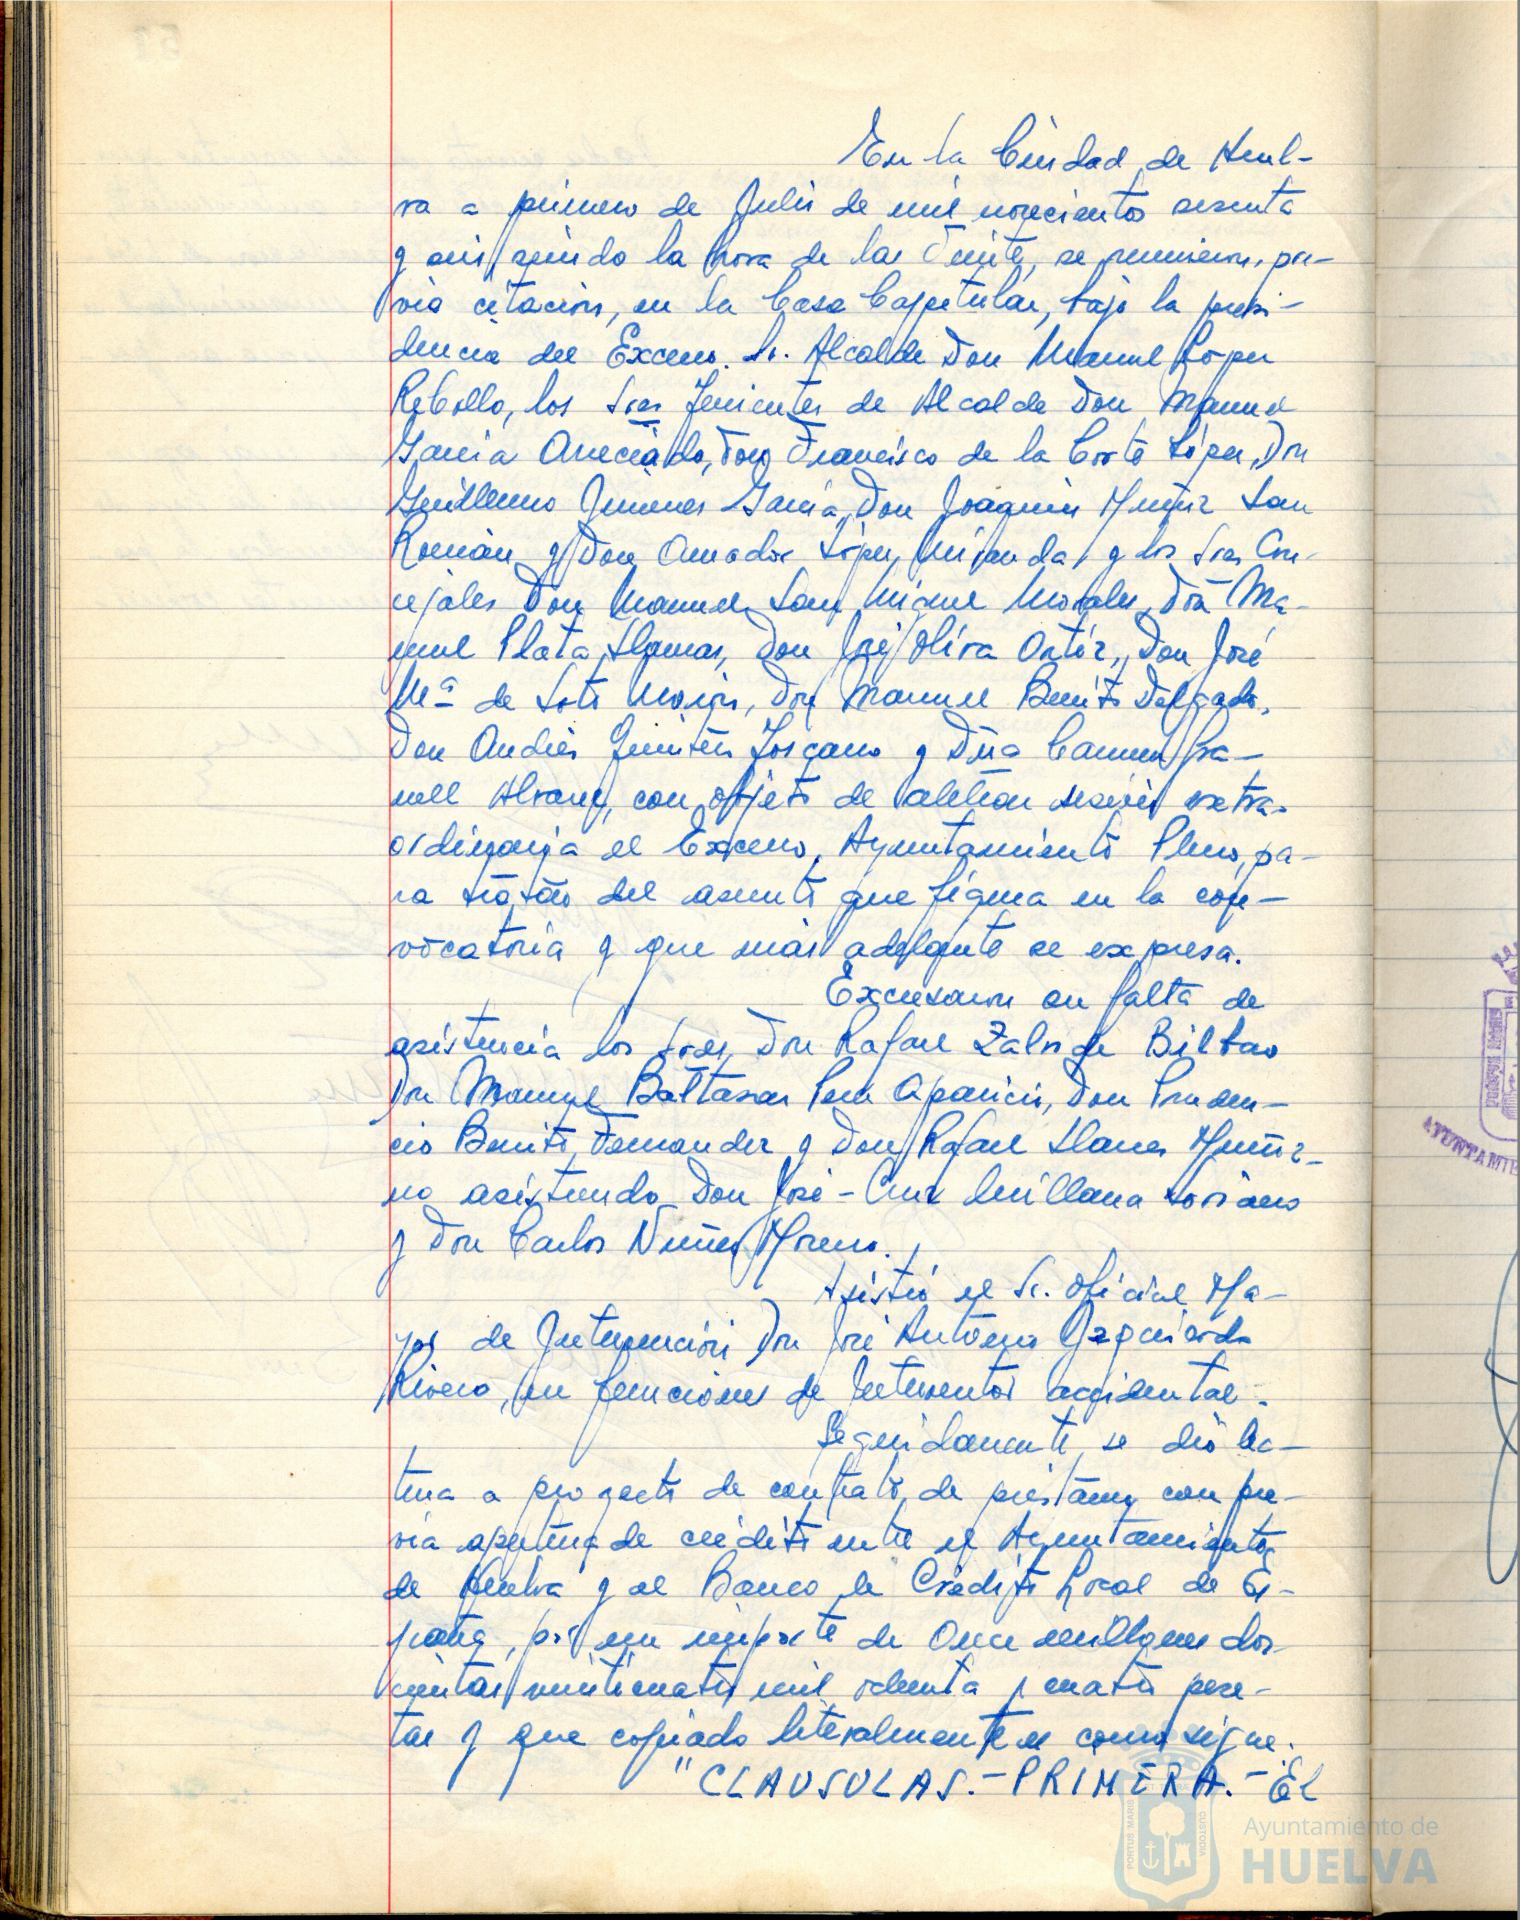 En la Ciudad de Huel-
va a primero de Julio de mil novecientos sesenta
y seis, siendo la hora de las veinte, se reunieron, pre-
via citación, en la Casa Capitular, bajo la presi-
dencia del Excmo. Sr. Alcalde Don Manuel López
Rebollo, los Sres Tenientes de Alcalde Don Manuel
García Don Francisco de la Corte López, Don
Guillermo Jimenez García, Don Joaquín Muñiz San
Román y Don Amador López Miranda, y los Sres Con-
cejales Don Manuel San Miguel Morales, Don Ma-
nuel Plata Llamas, Don José Oliva Ortíz, Don José
Mª de Soto Morón, Don Manuel Benito Delgado,
Don Andrés Quintero Toscano y Dña Carmen Gra-
nell Alvarez, con objeto de celebrar sesión extra-
ordinaria el Excmo, Ayuntamiento Pleno, pa-
ra tratar del asunto que figura en la con-
vocatoria y que más adelante se expresa.
Excusaron su falta de
asistencia los Sres, Don Rafael de Bilbao
Don Manuel Baltasar Pera Aparicio, Don Pruden-
cio Benito Fernandez y Don Rafael Llanes Muñiz-
no asistiendo Don José-Cruz Millana Soriano
y Don Carlos Núñez Moreno.
Asistió el Sr. Oficial Ma-
yor de Intervención Don José Antonio Yzquierdo
Rivero, en funciones de Interventor accidental.
Seguidamente, se dió lec-
tura a proyecto de contrato de préstamo con pre-
via apertura de crédito entre el Ayuntamiento
de Huelva y el Banco de Crédito Local de Es-
paña, por un importe de Once millones dos-
cientas veinticuatro mil ochenta y cuatro pese-
tas y que copiado literalmente es como sigue.
"CLAUSULAS.-PRIMERA.- El
PORTUS MARIS
CUSTODIA
Ayuntamiento de
HUELVA
AYUNTAMIE